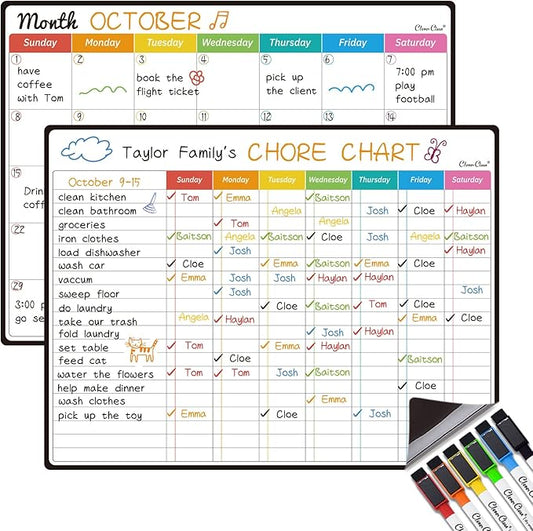 Month OCTOBER
CloverClover
Sunday Monday Tuesday Wednesday Thursday Friday Saturday
1 2 3 4 5 6 7
have coffee with Tom
book the flight ticket
pick up the client
7:00 pm play football
8 9 10 11 12 13 14
15
Drin
coffe
22
29
3:00 p
go se
Taylor Family's CHORE CHART
October 9-15 Sunday Monday Tuesday Wednesday Thursday Friday Saturday
clean kitchen ✓ Tom ✓ Emma ✓ Baitson
clean bathroom Angela Josh ✓ Cloe ✓ Haylan
groceries ✓ Tom
iron clothes ✓ Baitson Angela ✓ Baitson ✓ Cloe ✓ Baitson Angela ✓ Baitson
load dishwasher ✓ Josh ✓ Haylan
wash car ✓ Cloe ✓ Emma ✓ Baitson ✓ Emma ✓ Cloe
vaccum ✓ Emma Josh Josh ✓ Haylan ✓ Haylan
sweep floor ✓ Josh Josh
do laundry ✓ Cloe ✓ Baitson ✓ Tom ✓ Cloe
take our trash Angela ✓ Haylan ✓ Emma ✓ Cloe
fold laundry ✓ Josh ✓ Haylan
set table ✓ Tom ✓ Emma ✓ Haylan
feed cat ✓ Cloe ✓ Baitson
water the flowers ✓ Tom ✓ Tom Josh ✓ Baitson
help make dinner
wash clothes ✓ Emma
pick up the toy ✓ Emma ✓ Cloe ✓ Josh